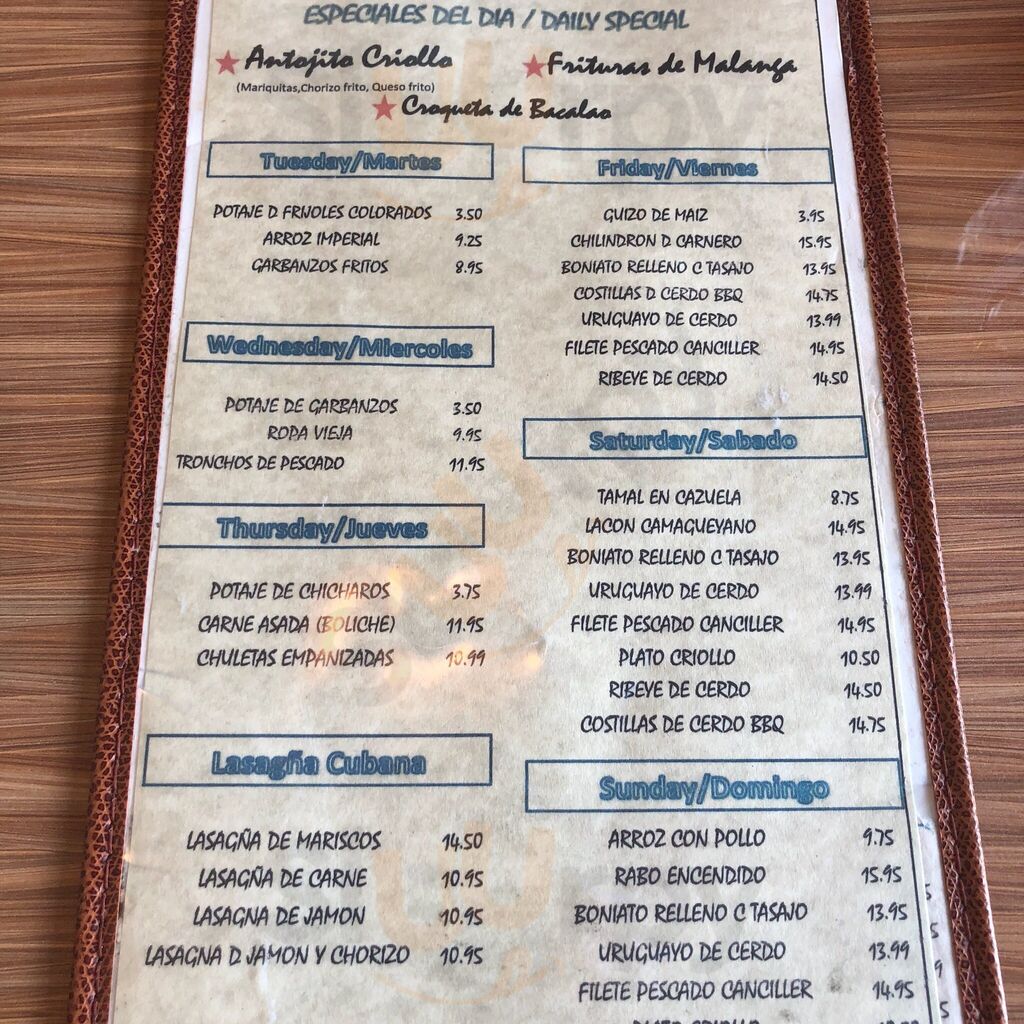 ESPECIALES DEL DIA / DAILY SPECIAL
Antojito Criollo
(Mariquitas,Chorizo frito, Queso frito)
Frituras de Malanga
Croqueta de Bacalao
Tuesday/Martes
POTAJE D FRIJOLES COLORADOS 3.50
ARROZ IMPERIAL 9.25
GARBANZOS FRITOS 8.95
Wednesday/Miercoles
POTAJE DE GARBANZOS 3.50
ROPA VIEJA 9.95
TRONCHOS DE PESCADO 11.95
Thursday/Jueves
POTAJE DE CHICHAROS 3.75
CARNE ASADA (BOLICHE) 11.95
CHULETAS EMPANIZADAS 10.99
Lasagña Cubana
LASAGÑA DE MARISCOS 14.50
LASAGÑA DE CARNE 10.95
LASAGNA DE JAMON 10.95
LASAGNA D JAMON Y CHORIZO 10.95
Friday/Viernes
GUIZO DE MAIZ 3.95
CHILINDRON D CARNERO 15.95
BONIATO RELLENO C TASAJO 13.95
COSTILLAS D CERDO BBQ 14.75
URUGUAYO DE CERDO 13.99
FILETE PESCADO CANCILLER 14.95
RIBEYE DE CERDO 14.50
Saturday/Sabado
TAMAL EN CAZUELA 8.75
LACON CAMAGUEYANO 14.95
BONIATO RELLENO C TASAJO 13.95
URUGUAYO DE CERDO 13.99
FILETE PESCADO CANCILLER 14.95
PLATO CRIOLLO 10.50
RIBEYE DE CERDO 14.50
COSTILLAS DE CERDO BBQ 14.75
Sunday/Domingo
ARROZ CON POLLO 9.75
RABO ENCENDIDO 15.95
BONIATO RELLENO C TASAJO 13.95
URUGUAYO DE CERDO 13.99
FILETE PESCADO CANCILLER 14.95
PLATO CRIOLLO